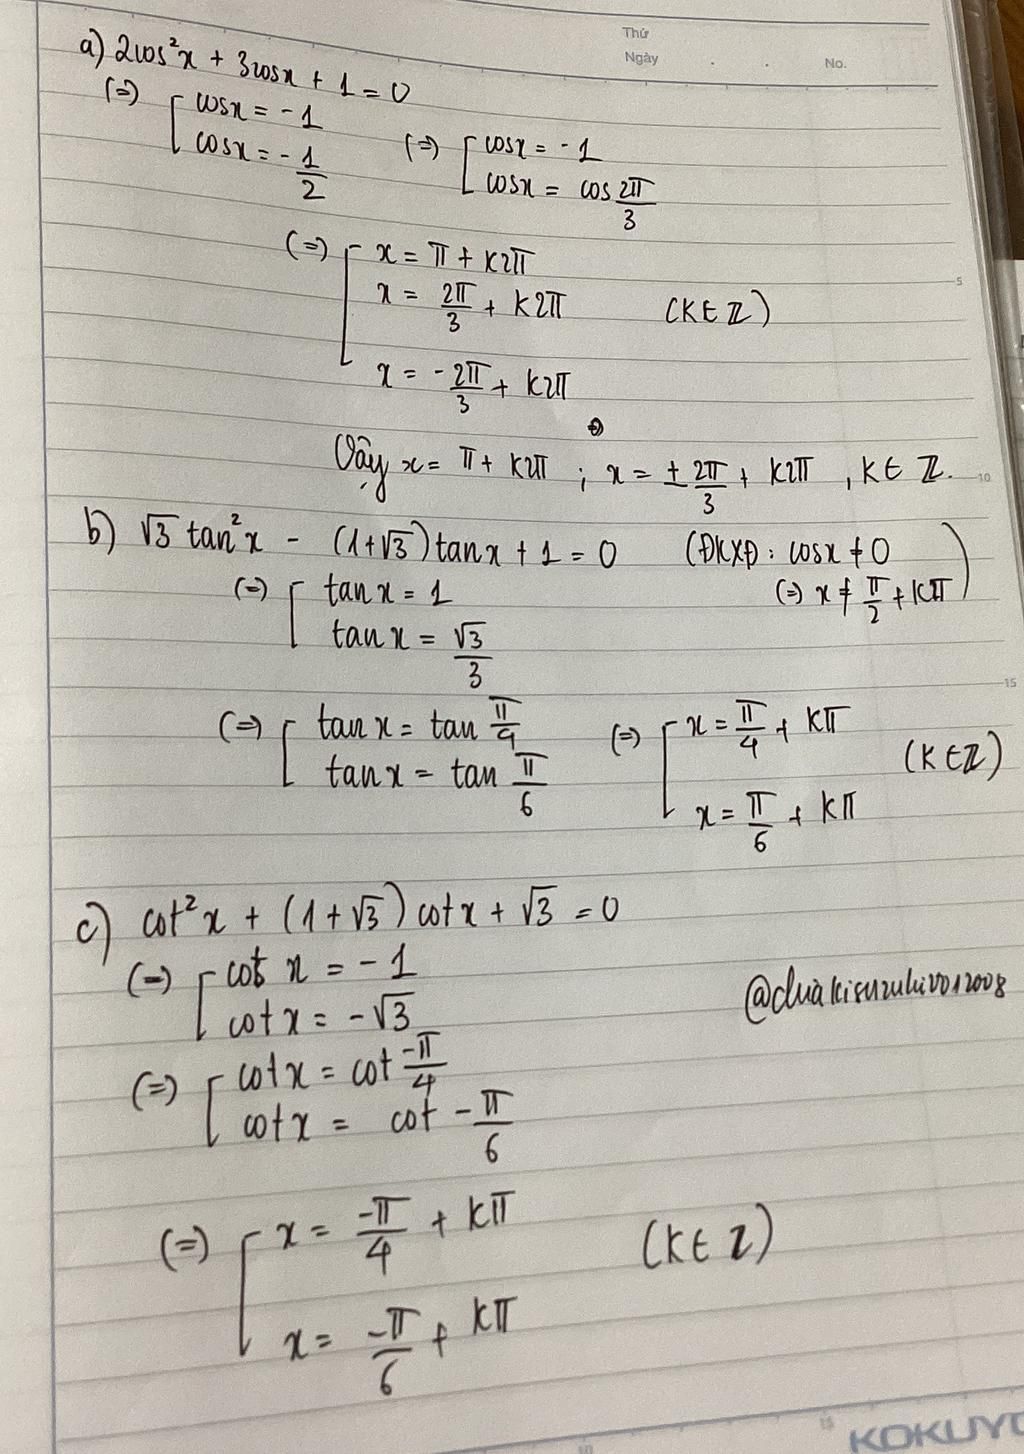 Thứ
Ngày . . No.
a) 2cos²x + 3cosx + 1 = 0
(=) [ cosx = -1
cosx = -1/2
(=) [ cosx = -1
cosx = cos 2π/3
(=) [ x = π + k2π
x = 2π/3 + k2π (k∈Z)
x = -2π/3 + k2π
Vậy x = π + k2π ; x = ± 2π/3 + k2π , k∈ Z.
b) √3 tan²x - (1+√3)tanx + 1 = 0 (ĐKXĐ: cosx ≠ 0
(=) x ≠ π/2 + kπ)
(=) [ tanx = 1
tanx = √3/3
(=) [ tanx = tan π/4
tanx = tan π/6
(=) [ x = π/4 + kπ
x = π/6 + kπ (k∈Z)
c) cot²x + (1+√3)cotx + √3 = 0
(=) [ cot x = -1
cotx = -√3
(=) [ cotx = cot -π/4
cotx = cot -π/6
(=) [ x = -π/4 + kπ (k∈Z)
x = -π/6 + kπ
5
10
15
KOKUYO